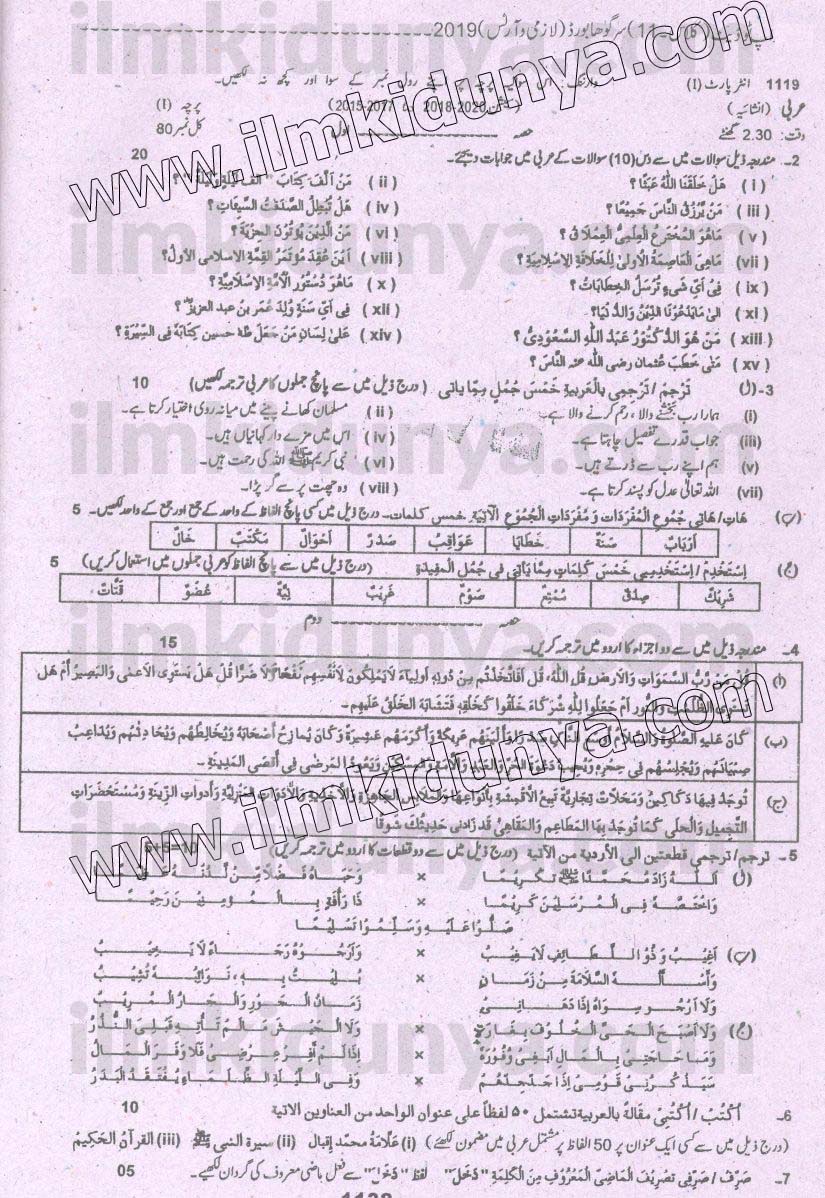 گلاس 11) سرگودھا بورڈ (لازمی و آرٹس) 2019
1119 انٹر پارٹ (I) وارننگ: اس سوالیہ پرچہ پر اپنے رول نمبر کے سوا اور کچھ نہ لکھیں۔
عربی (انشائیہ) پرچہ (I)
وقت: 2.30 گھنٹے حصہ اول کل نمبر 80
2۔ مندرجہ ذیل سوالات میں سے دس (10) سوالات کے عربی میں جوابات دیجئے۔ 20
( i ) هَلْ خَلَقَنَا اللّٰهُ عَبَثًا؟ ( ii ) مَنْ اَلَّفَ كِتَابَ "الف لَيْلَة وَلَيْلَة"؟
( iii ) مَنْ يَّرْزُقُ النَّاسَ جَمِيْعًا؟ ( iv ) هَلْ تُبْطِلُ الصَّدَقٰتُ السَّيِّئَاتِ؟
( v ) مَاهُوَ الْمُخْتَرَعُ الْعِلْمِيُّ الْعِمْلَاقُ؟ ( vi ) مَنِ الَّذِيْنَ يُؤْتُوْنَ الْجِزْيَةَ؟
( vii ) مَاهِيَ الْعَاصِمَةُ الْاُوْلىٰ لِلْخِلَافَةِ الْاِسْلَامِيَّةِ؟ ( viii ) اَيْنَ عُقِدَ مُؤْتَمَرُ القِمَّةِ الاسلامى الاوّلُ؟
( ix ) فِىْ اَيِّ شَىْءٍ تُرْسَلُ الْخِطَابَاتُ؟ ( x ) مَاهُوَ دُسْتُوْرُ الْاُمَّةِ الْاِسْلَامِيَّةِ؟
( xi ) الىٰ مَايَدْعُوْنَا الدِّيْنُ وَالدُّنْيَا؟ ( xii ) فِى اَيِّ سَنَةٍ وُلِدَ عُمَر بن عبد العزيزؒ؟
( xiii ) مَنْ هُوَ الدُّكْتُوْرُ عَبْدُ اللّٰهِ السَّعُوْدِىُّ؟ ( xiv ) عَلىٰ لِسَانِ مَنْ جَعَلَ طٰهٰ حسين كِتَابَهٗ فِى السِّيْرَةِ؟
( xv ) مَتٰى خَطَبَ عُثمان رضى الله عنه النّاسَ؟
3۔(ا) تَرْجِمْ / تَرْجِمِىْ بِالْعَرَبِيةِ خَمْسَ جُمَلٍ مِمَّا يَاتِى (درج ذیل میں سے پانچ جملوں کا عربی ترجمہ لکھیں) 10
(i) ہمارا رب بخشنے والا، رحم کرنے والا ہے۔ ( ii ) مسلمان کھانے پینے میں میانہ روی اختیار کرتا ہے۔
(iii) جواب قدرے تفصیل چاہتا ہے۔ ( iv ) اس میں مزے دار کہانیاں ہیں۔
(v) ہم اپنے رب سے ڈرتے ہیں۔ ( vi ) نبی کریم ﷺ اللہ کی رحمت ہیں۔
(vii) اللہ تعالیٰ عدل کو پسند کرتا ہے۔ ( viii ) وہ چھت پر سے گر پڑا۔
(ب) هَاتِ/هَاتِى جُمُوعَ الْمُفْرَدَاتِ وَمُفْرَدَاتِ الْجُمُوْعِ الْآتِيَةِ خمس كلمات۔ درج ذیل میں کسی پانچ الفاظ کے واحد کے جمع اور جمع کے واحد لکھیں۔ 5
اَرْبَابٌ سَنَةٌ خَطَايَا عَوَاقِبُ صَدْرٌ اَحْوَالٌ مَكْتَبٌ خَالٌ
(ج) اِسْتَخْدِمْ / اِسْتَخْدِمِىْ خَمْسَ كَلِمَاتٍ مِمَّا يَاْتِى فِى جُمَلٍ الْمفِيْدَةِ (درج ذیل میں سے پانچ الفاظ کو عربی جملوں میں استعمال کریں) 5
شَرِيْكٌ صِدْقٌ مُمْتِعٌ صَوْمٌ غَرِيْبٌ نِيَّةٌ عُضْوٌ قَتَّاتٌ
حصہ دوم
4۔ مندرجہ ذیل میں سے دو اجزاء کا اردو میں ترجمہ کریں۔ 15
(ا) قُلْ مَنْ رَّبُّ السَّمٰوٰتِ وَالْاَرْضِ قُلِ اللّٰهُ، قُلْ اَفَاتَّخَذْتُمْ مِنْ دُوْنِهٖ اَوْلِيَآءَ لَايَمْلِكُوْنَ لِاَنْفُسِهِمْ نَفْعًا وَّلَا ضَرًّا قُلْ هَلْ يَسْتَوِى الْاَعْمٰى وَالْبَصِيْرُ اَمْ هَلْ
تَسْتَوِى الظُّلُمٰتُ وَالنُّوْرُ اَمْ جَعَلُوْا لِلّٰهِ شُرَكَآءَ خَلَقُوْا كَخَلْقِهٖ فَتَشَابَهَ الْخَلْقُ عَلَيْهِمْ۔
(ب) كَانَ عَلَيْهِ الصَّلٰوةُ وَالسَّلَامُ وَاَلْيَنَهُمْ عَرِيْكَةً وَاَكْرَمَهُمْ عَشِيْرَةً وَكَانَ يُمَازِحُ اَصْحَابَهٗ وَيُخَالِطُهُمْ وَيُحَادِثُهُمْ وَيُدَاعِبُ
صِبْيَانَهُمْ وَيُجْلِسُهُمْ فِى حِجْرِهٖ وَيُجِيْبُ دَعْوَةَ الْحُرِّ وَالْعَبْدِ وَالْاَمَةِ وَالْمِسْكِيْنِ وَيَعُوْدُ الْمَرْضٰى فِى اَقْصَى الْمَدِيْنَةِ۔
(ج) تُوْجَدُ فِيْهَا دَكَاكِيْنُ وَمَحَلَّاتٌ تِجَارِيَّةٌ تَبِيْعُ الْاَقْمِشَةَ بِاَنْوَاعِهَا وَالْمَلَابِسَ الْجَاهِزَةَ وَالْاَحْذِيَةَ وَالْاَدَوَاتِ الْمَنْزِلِيَّةَ وَاَدَوَاتِ الزِّيْنَةِ وَمُسْتَحْضَرَاتِ
التَّجْمِيْلِ وَالْحُلِىَّ كَمَا تُوْجَدُ بِهَا الْمَطَاعِمُ وَالْمَقَاهِىْ قَدْ زَادَنِى حَدِيْثُكَ شَوْقًا
5۔ ترجم/ترجمى قطعتين الى الأردية من الآتية (درج ذیل میں سے دو قطعات کا اردو میں ترجمہ کریں) 5+5=10
(ا) اَللّٰهُ زَادَ مُحَمَّدًا ﷺ تَكْرِيْمًا × وَحَبَاهُ فَضْلًا مِّنْ لَّدُنْهُ عَظِيْمًا
وَاخْتَصَّهٗ فِى الْمُرْسَلِيْنَ كَرِيْمًا × ذَا رَاْفَةٍ بِالْمُؤْمِنِيْنَ رَحِيْمًا
صَلُّوْا عَلَيْهِ وَسَلِّمُوْا تَسْلِيْمًا
(ب) اَغِيْبُ وَذُو اللَّطَائِفِ لَايَغِيْبُ × وَاَرْجُوْهُ رَجَاءً لَا يَخِيْبُ
وَاَسْاَلُهُ السَّلَامَةَ مِنْ زَمَانٍ × بُلِيْتُ بِهٖ، نَوَائِبُهٗ تُشِيْبُ
وَلَا اَرْجُوْ سِوَاهُ اِذَا دَهَانِىْ × زَمَانُ الْجَوْرِ وَالْجَارُ الْمُرِيْبُ
(ج) وَلَا اُصْبِحُ الْحَىَّ الْخُلُوْفَ بِغَارَةٍ × وَلَا الْجَيْشَ مَالَمْ تَأْتِهٖ قَبْلِىَ النُّذُرُ
وَمَا حَاجَتِىْ بِالْمَالِ اَبْغِىْ وُفُوْرَهٗ × اِذَا لَمْ اَفِرْ عِرْضِىْ فَلَا وَفَرَ الْمَالُ
سَيَذْكُرُنِىْ قَوْمِىْ اِذَا جَدَّ جِدُّهُمْ × وَفِى اللَّيْلَةِ الظَّلْمَاءِ يُفْتَقَدُ الْبَدْرُ
6۔ اُكْتُبْ / اُكْتُبِىْ مَقَالَةً بِالعربية تشتمل ٥٠ لفظاً على عنوان الواحد من العناوين الاتية 10
(درج ذیل میں سے کسی ایک عنوان پر 50 الفاظ پر مشتمل عربی میں مضمون لکھئے) (i) عَلَّامَهْ محمّد إقبال (ii) سيرة النبى ﷺ (iii) القرآن الحكيم
7۔ صَرِّفْ / صَرِّفِى تَصْرِيْفَ الْمَاضِى الْمَعْرُوْفِ مِنَ الْكَلِمَةِ "دَخَلَ" لفظ "دَخَلَ" سے فعل ماضی معروف کی گردان لکھیے۔ 05
www.ilmkidunya.com
www.ilmkidunya.com
ilmkidunya.com